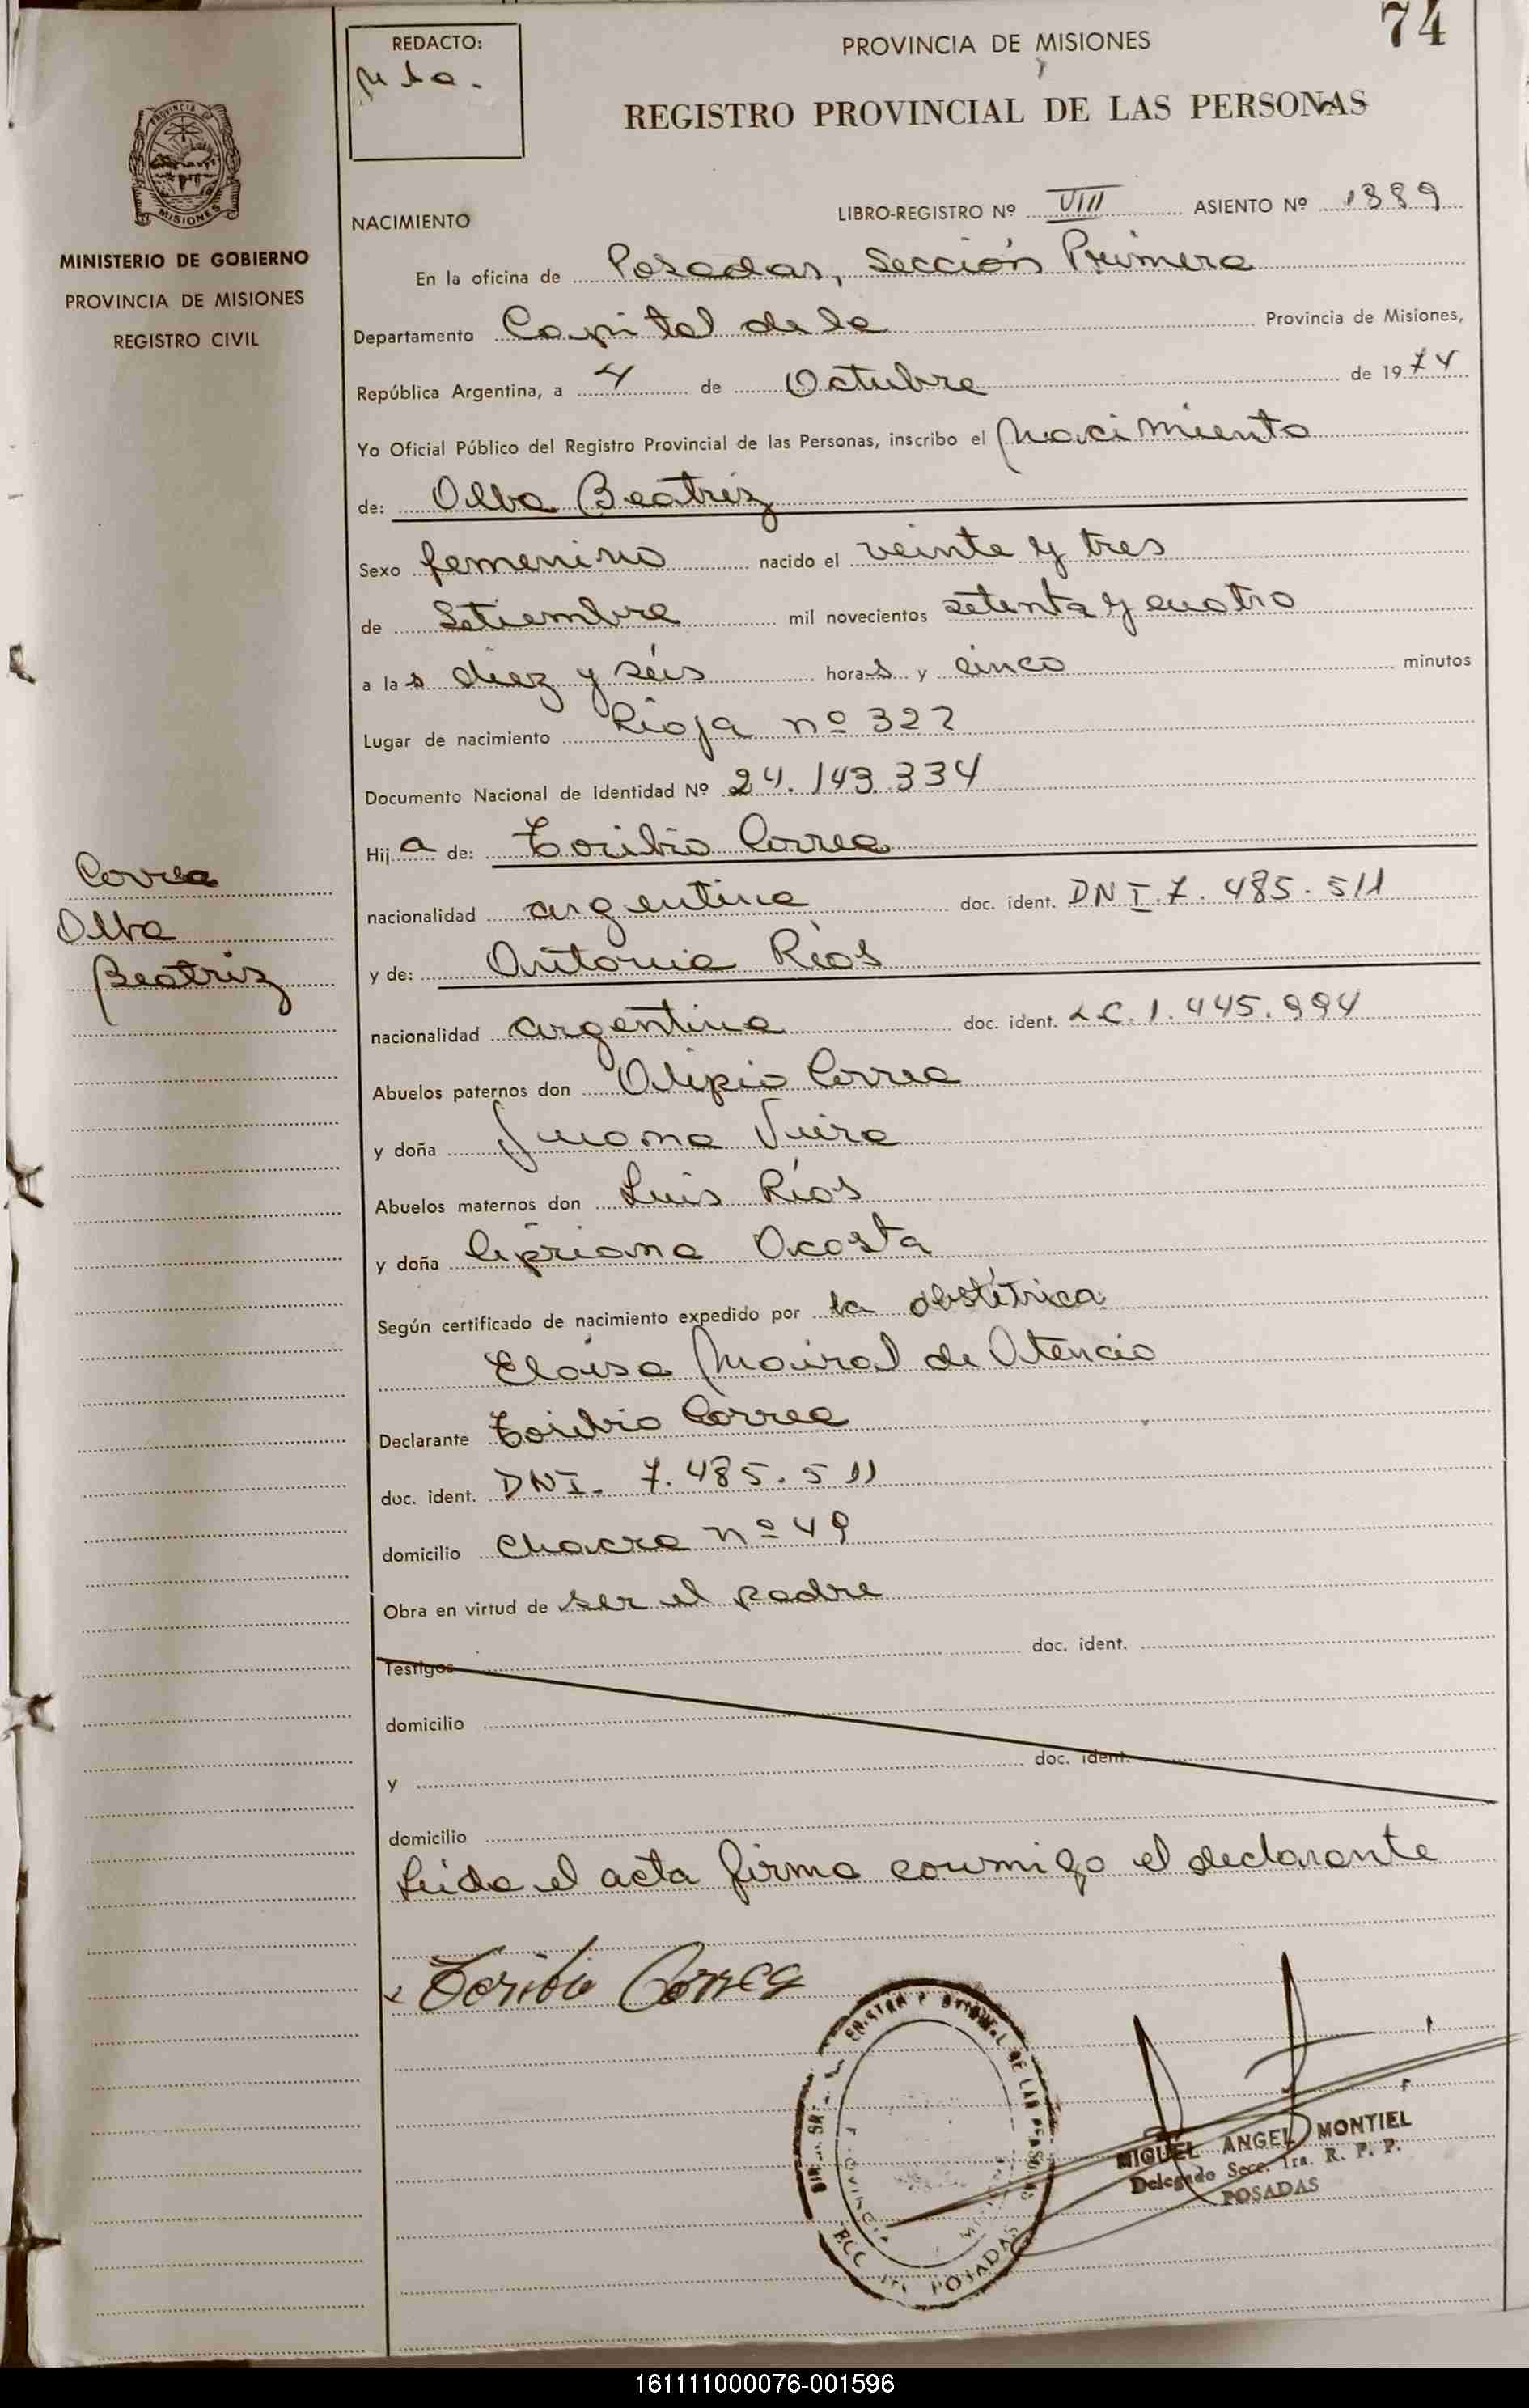 74
REDACTO:
PROVINCIA DE MISIONES
REGISTRO PROVINCIAL DE LAS PERSONAS
MISIONES
MINISTERIO DE GOBIERNO
PROVINCIA DE MISIONES
REGISTRO CIVIL
NACIMIENTO
LIBRO-REGISTRO Nº VIII ASIENTO Nº 1389
En la oficina de Posadas, Sección Primera
Departamento Capital de la Provincia de Misiones,
República Argentina, a 4 de Octubre de 1974
Yo Oficial Público del Registro Provincial de las Personas, inscribo el Nacimiento
de: Olba Beatriz
Sexo femenino nacido el veinte y tres
de Setiembre mil novecientos setenta y cuatro
a las diez y séis horas y cinco minutos
Lugar de nacimiento Rioja nº 322
Documento Nacional de Identidad Nº 24.143.334
Hija de: Toribio Correa
Correa
Olba
Beatriz
nacionalidad argentina doc. ident. DNI. 7.485.511
y de: Antonia Ríos
nacionalidad argentina doc. ident. L.C. 1.445.994
Abuelos paternos don Olipio Correa
y doña Juana Viera
Abuelos maternos don Luis Ríos
y doña Cipriana Acosta
Según certificado de nacimiento expedido por la obstétrica
Eloisa Mairal de Atencio
Declarante Toribio Correa
doc. ident. DNI. 7.485.511
domicilio Chacra nº 49
Obra en virtud de ser el padre
Testigos doc. ident.
domicilio
y doc. ident.
domicilio
Leida el acta firma conmigo el declarante
Toribio Correa
MIGUEL ANGEL MONTIEL
Delegado Secc. 1ra. R. P. P.
POSADAS
POSADAS
161111000076-001596